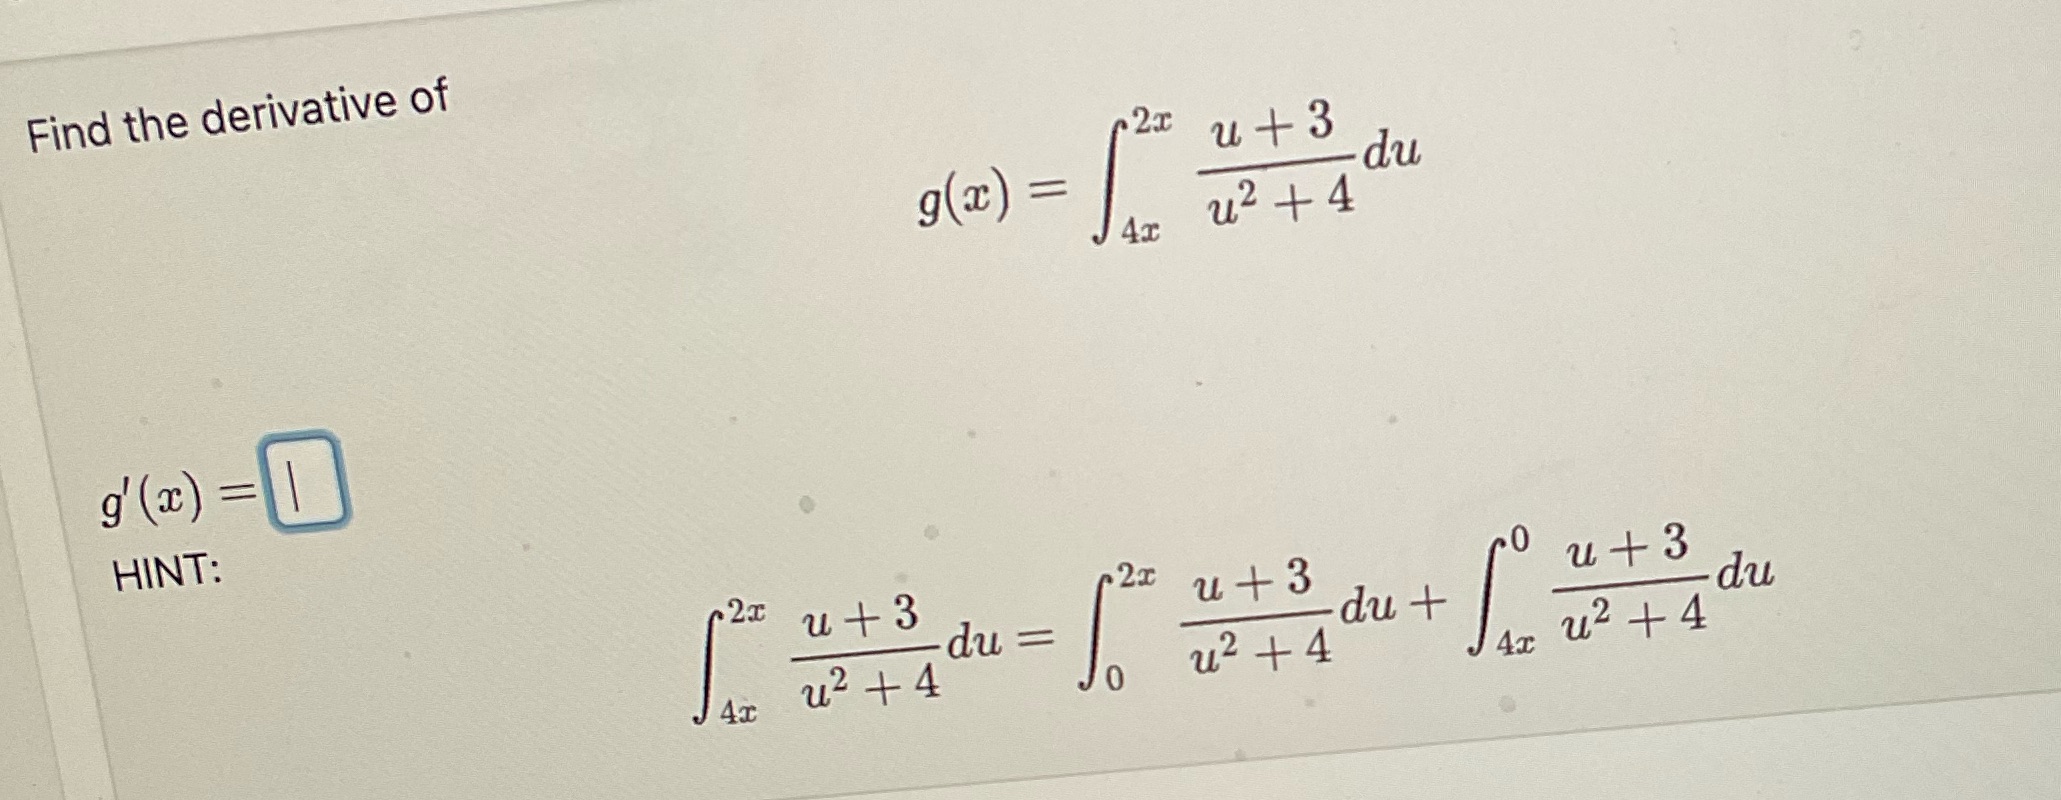 Find the derivative of
g(x) = ∫_{4x}^{2x} \frac{u + 3}{u^2 + 4} du
g'(x) =
HINT:
∫_{4x}^{2x} \frac{u + 3}{u^2 + 4} du = ∫_{0}^{2x} \frac{u + 3}{u^2 + 4} du + ∫_{4x}^{0} \frac{u + 3}{u^2 + 4} du